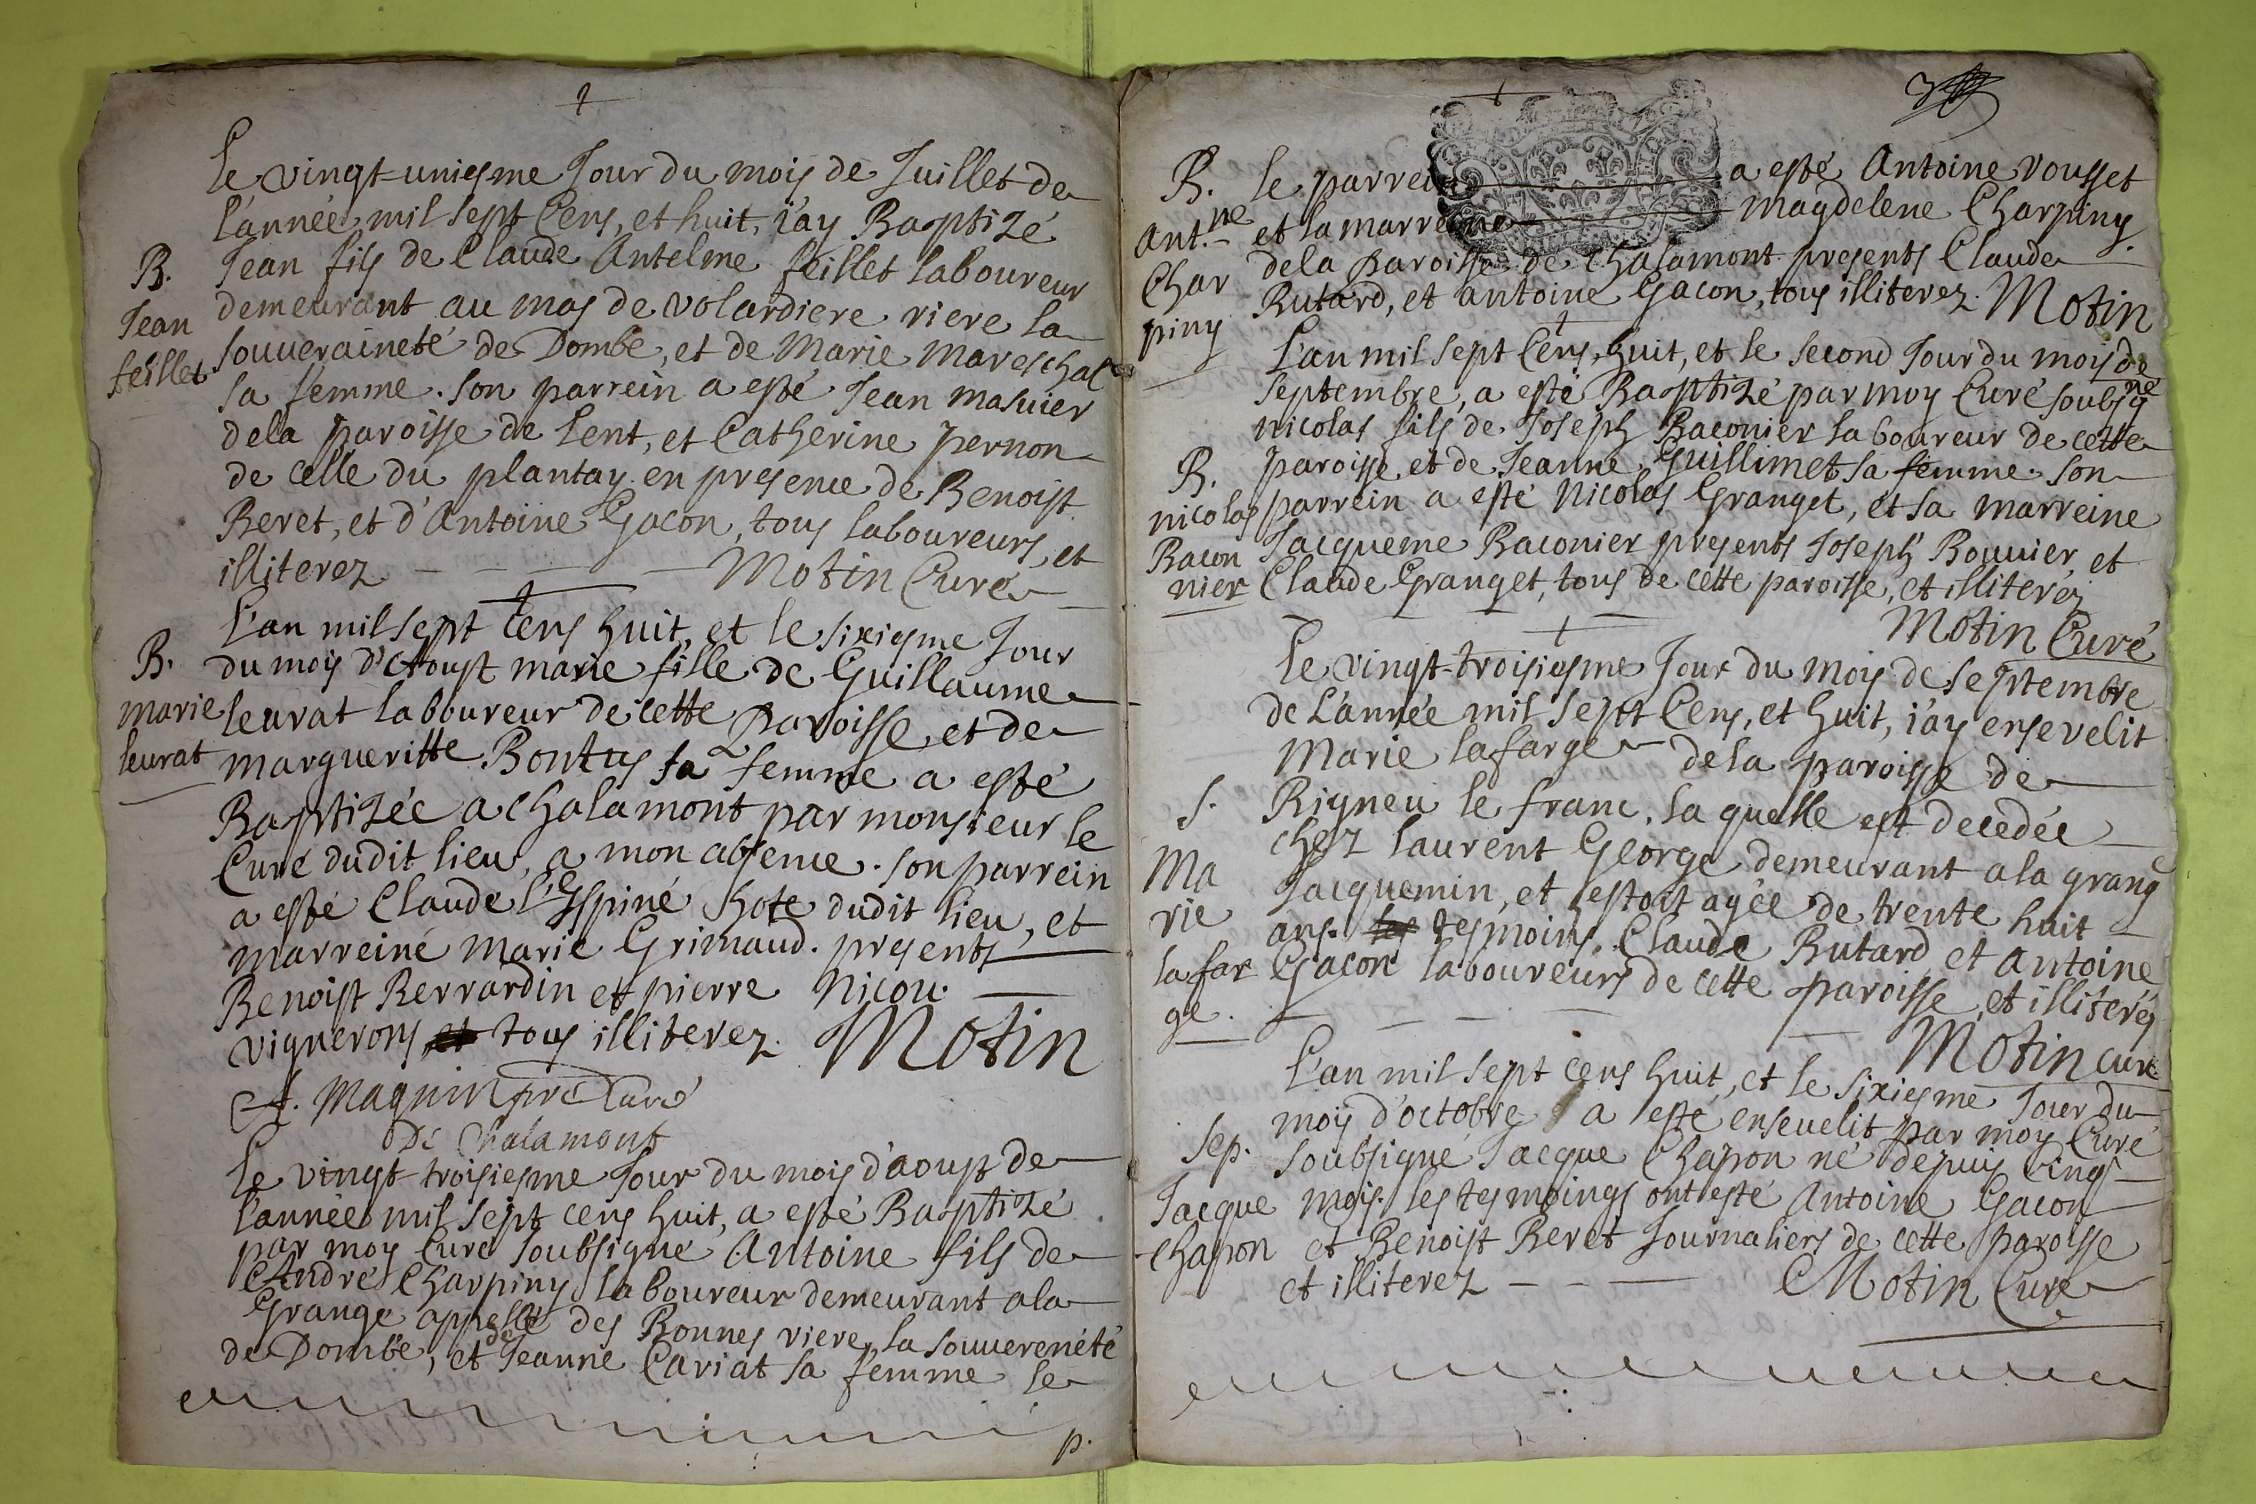 Le vingt-uniesme Jour du mois de Juillet de
L'année mil sept Cens, et huit, i'ay Baptizé
B. Jean fils de Claude Antelme feillet laboureur
Jean demeurant au mas de volardiere riere la
feillet souveraineté de Dombe, et de Marie Mareschal
sa femme. son parrein a esté Jean masuier
dela paroisse de Lent, et Catherine pernon
de celle du plantay. en presence de Benoist
Beret, et d'Antoine Gacon, tous laboureurs, et
illiterez Motin Curé
L'an mil sept Cens huit, et le sixiesme Jour
B. du mois d'Aoust marie fille de Guillaume
marie leurat laboureur de cette Paroisse, et de
leurat margueritte Bontus sa femme a esté
Baptizée a Chalamont par monsieur le
Curé dudit lieu, a mon absence. son parrein
a esté Claude l'Espiné hote dudit lieu, et
marreine Marie Grimaud. presents
Benoist Berrardin et pierre Nicou.
vignerons et tous illiterez. Motin
Maquin pre Curé
De Chalamont
Le vingt-troisiesme Jour du mois d'aoust de
l'année mil sept cens huit, a esté Baptizé
par moy Curé soubsigné Antoine fils de
André Charpiny laboureur demeurant ala
Grange appellé des Bonnes riere la souvereneté
de Dombe, et de Jeanne Cariat sa femme le
p.
B. le parrein a esté Antoine Vousset
Ant.ne et la marreine magdelene Charpiny
Char dela paroisse de Chalamont presents Claude
piny Rutard, et antoine Gacon, tous illiterez. Motin
L'an mil sept Cens, huit, et le second Jour du mois de
septembre, a esté Baptizé par moy Curé soubsigné
nicolas fils de Joseph Baconier laboureur de cette
B. paroisse et de Jeanne Guillimet sa femme. son
nicolas parrein a esté Nicolas Granget, et sa marreine
Bacon Jacqueme Baconier presents Joseph Bouvier, et
nier Claude Granget, tous de cette paroisse, et illiterez
Motin Curé
Le vingt-troisiesme Jour du mois de septembre
de L'année mil sept Cens, et huit, i'ay ensevelit
Marie lafarge dela paroisse de
S. Rigneu le franc, la quelle est decedée
chez laurent George demeurant ala grange
Ma Jacquemin, et estoit agée de trente huit
rie ans. les tesmoins, Claude Rutard et antoine
lafar Gacon laboureurs de cette paroisse, et illiterez
ge. Motin curé
L'an mil sept cens huit, et le sixiesme Jour du
mois d'octobre a esté ensevelit par moy Curé
Sep. soubsigné Jacque Chapon né depuis cinq
Jacque mois. les tesmoings ont esté Antoine Gacon
Chapon et Benoist Beret Journaliers de cette paroisse
et illiterez Motin Curé